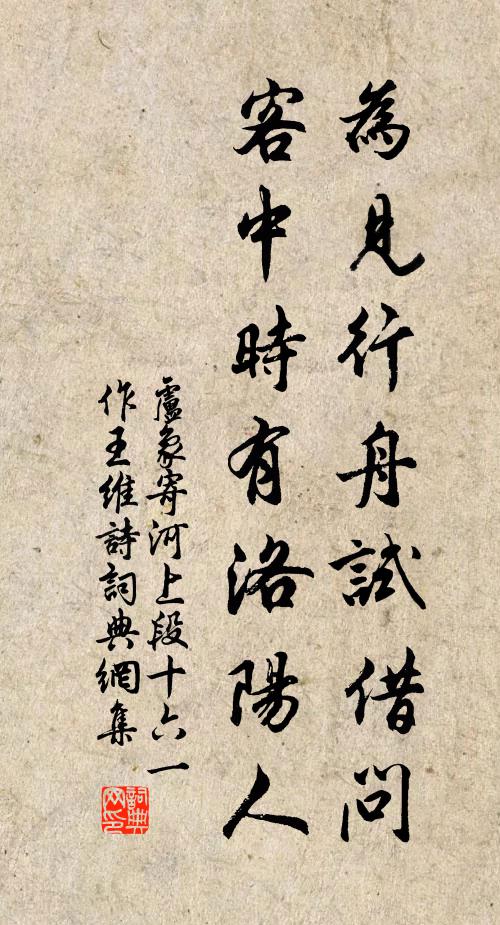 為見行舟試借問
客中時有洛陽人
盧象寄河上段十六一
作王維詩詞典網集
詞典
网印